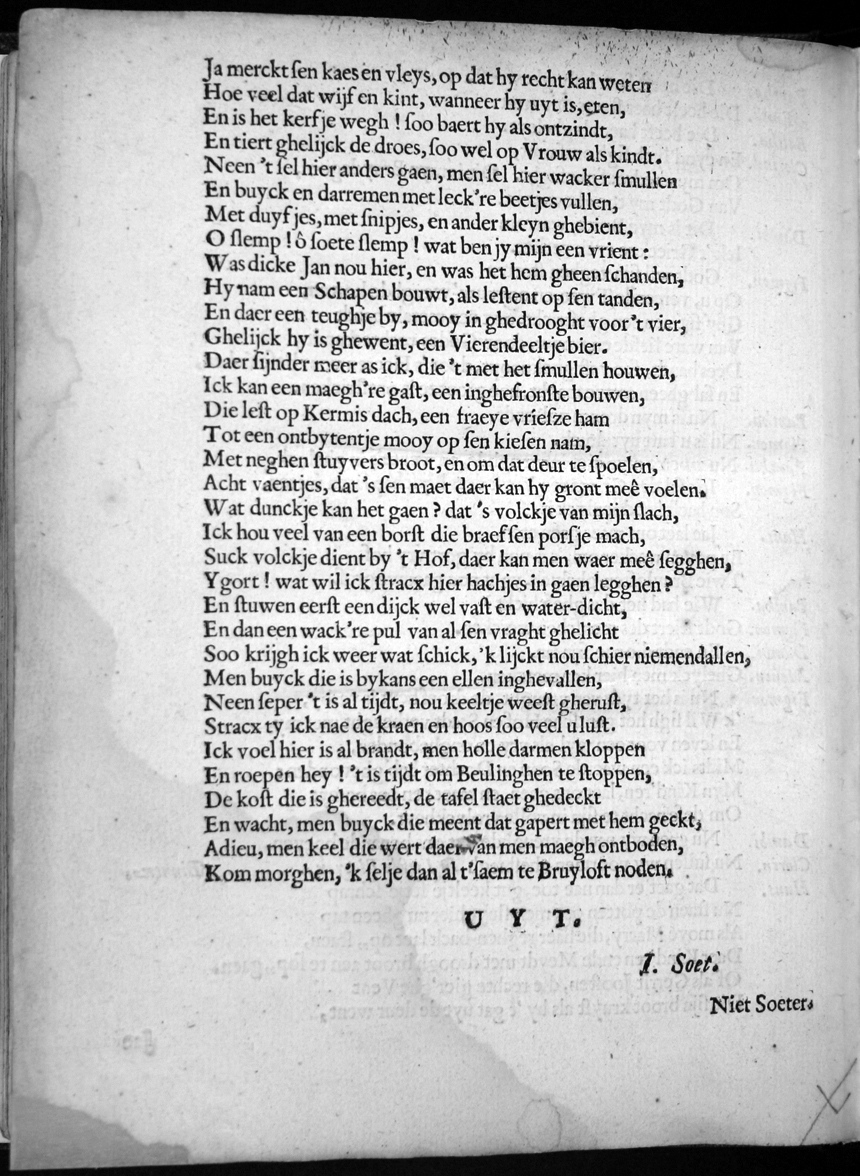 Ja merckt ſen kaes en vleys, op dat hy recht kan weten
Hoe veel dat wijf en kint, wanneer hy uyt is, eten,
En is het kerfje wegh ! ſoo baert hy als ontzindt,
En tiert ghelijck de droes, ſoo wel op Vrouw als kindt.
Neen 't ſel hier anders gaen, men ſel hier wacker ſmullen
En buyck en darremen met leck're beetjes vullen,
Met duyfjes, met ſnipjes, en ander kleyn ghebient,
O ſlemp ! ô ſoete ſlemp ! wat ben jy mijn een vrient :
Was dicke Jan nou hier, en was het hem gheen ſchanden,
Hy nam een Schapen bouwt, als leſtent op ſen tanden,
En daer een teughje by, mooy in ghedrooght voor 't vier,
Ghelijck hy is ghewent, een Vierendeeltje bier.
Daer ſijnder meer as ick, die 't met het ſmullen houwen,
Ick kan een maegh're gaſt, een inghefronſte bouwen,
Die leſt op Kermis dach, een fraeye vrieſze ham
Tot een ontbytentje mooy op ſen kieſen nam,
Met neghen ſtuyvers broot, en om dat deur te ſpoelen,
Acht vaentjes, dat 's ſen maet daer kan hy gront meê voelen.
Wat dunckje kan het gaen ? dat 's volckje van mijn ſlach,
Ick hou veel van een borſt die braef ſen porſje mach,
Suck volckje dient by 't Hof, daer kan men waer meê ſegghen,
Ygort ! wat wil ick ſtracx hier hachjes in gaen legghen ?
En ſtuwen eerſt een dijck wel vaſt en water-dicht,
En dan een wack're pul van al ſen vraght ghelicht
Soo krijgh ick weer wat ſchick, 'k lijckt nou ſchier niemendallen,
Men buyck die is bykans een ellen inghevallen,
Neen ſeper 't is al tijdt, nou keeltje weeſt gheruſt,
Stracx ty ick nae de kraen en hoos ſoo veel u luſt.
Ick voel hier is al brandt, men holle darmen kloppen
En roepen hey ! 't is tijdt om Beulinghen te ſtoppen,
De koſt die is ghereedt, de tafel ſtaet ghedeckt
En wacht, men buyck die meent dat gapert met hem geckt,
Adieu, men keel die wert daer van men maegh ontboden,
Kom morghen, 'k ſelje dan al t'ſaem te Bruyloft noden.
U Y T.
I. Soet.
Niet Soeter.